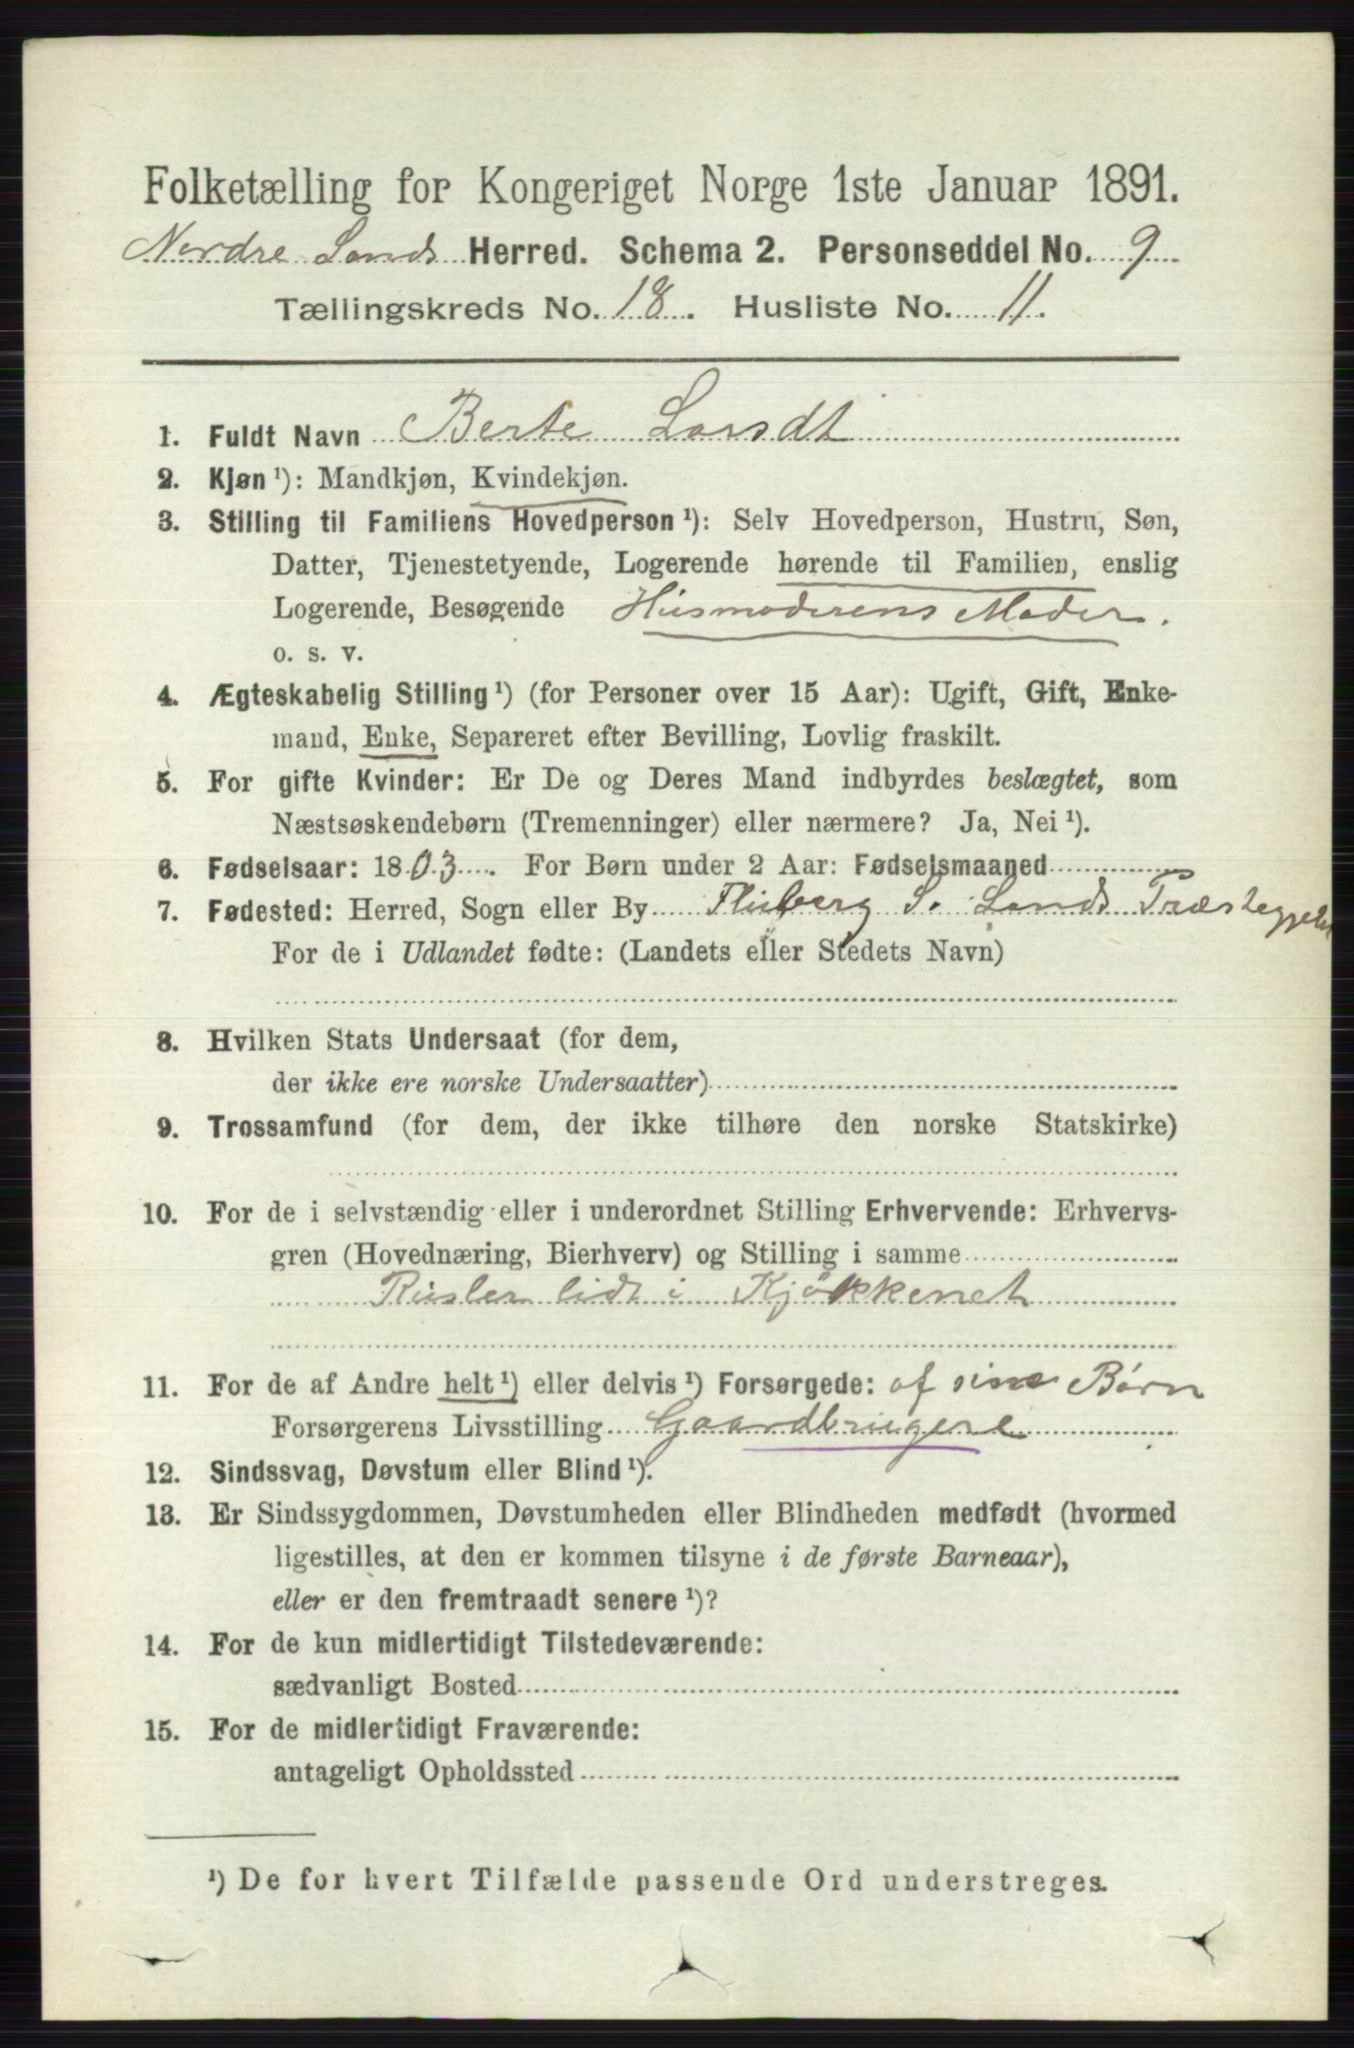 Folketælling for Kongeriget Norge 1ste Januar 1891.
Nordre Lands Herred. Schema 2. Personseddel No. 9
Tællingskreds No. 18. Husliste No. 11.
1. Fuldt Navn Berte Larsdt
2. Kjøn ¹): Mandkjøn, Kvindekjøn.
3. Stilling til Familiens Hovedperson ¹): Selv Hovedperson, Hustru, Søn,
Datter, Tjenestetyende, Logerende hørende til Familien, enslig
Logerende, Besøgende Husmoderens Moder.
o. s. v.
4. Ægteskabelig Stilling ¹) (for Personer over 15 Aar): Ugift, Gift, Enke-
mand, Enke, Separeret efter Bevilling, Lovlig fraskilt.
5. For gifte Kvinder: Er De og Deres Mand indbyrdes beslægtet, som
Næstsøskendebørn (Tremenninger) eller nærmere? Ja, Nei ¹).
6. Fødselsaar: 1803. For Børn under 2 Aar: Fødselsmaaned
7. Fødested: Herred, Sogn eller By Fluberg S. Lands Præsteggjeld
For de i Udlandet fødte: (Landets eller Stedets Navn)
8. Hvilken Stats Undersaat (for dem,
der ikke ere norske Undersaatter)
9. Trossamfund (for dem, der ikke tilhøre den norske Statskirke)
10. For de i selvstændig eller i underordnet Stilling Erhvervende: Erhvervs-
gren (Hovednæring, Bierhverv) og Stilling i samme
Rusler lidt i Kjøkkenet
11. For de af Andre helt ¹) eller delvis ¹) Forsørgede: af sine Børn
Forsørgerens Livsstilling Gaardbrugere
12. Sindssvag, Døvstum eller Blind ¹).
13. Er Sindssygdommen, Døvstumheden eller Blindheden medfødt (hvormed
ligestilles, at den er kommen tilsyne i de første Barneaar),
eller er den fremtraadt senere ¹)?
14. For de kun midlertidigt Tilstedeværende:
sædvanligt Bosted
15. For de midlertidigt Fraværende:
antageligt Opholdssted
¹) De for hvert Tilfælde passende Ord understreges.